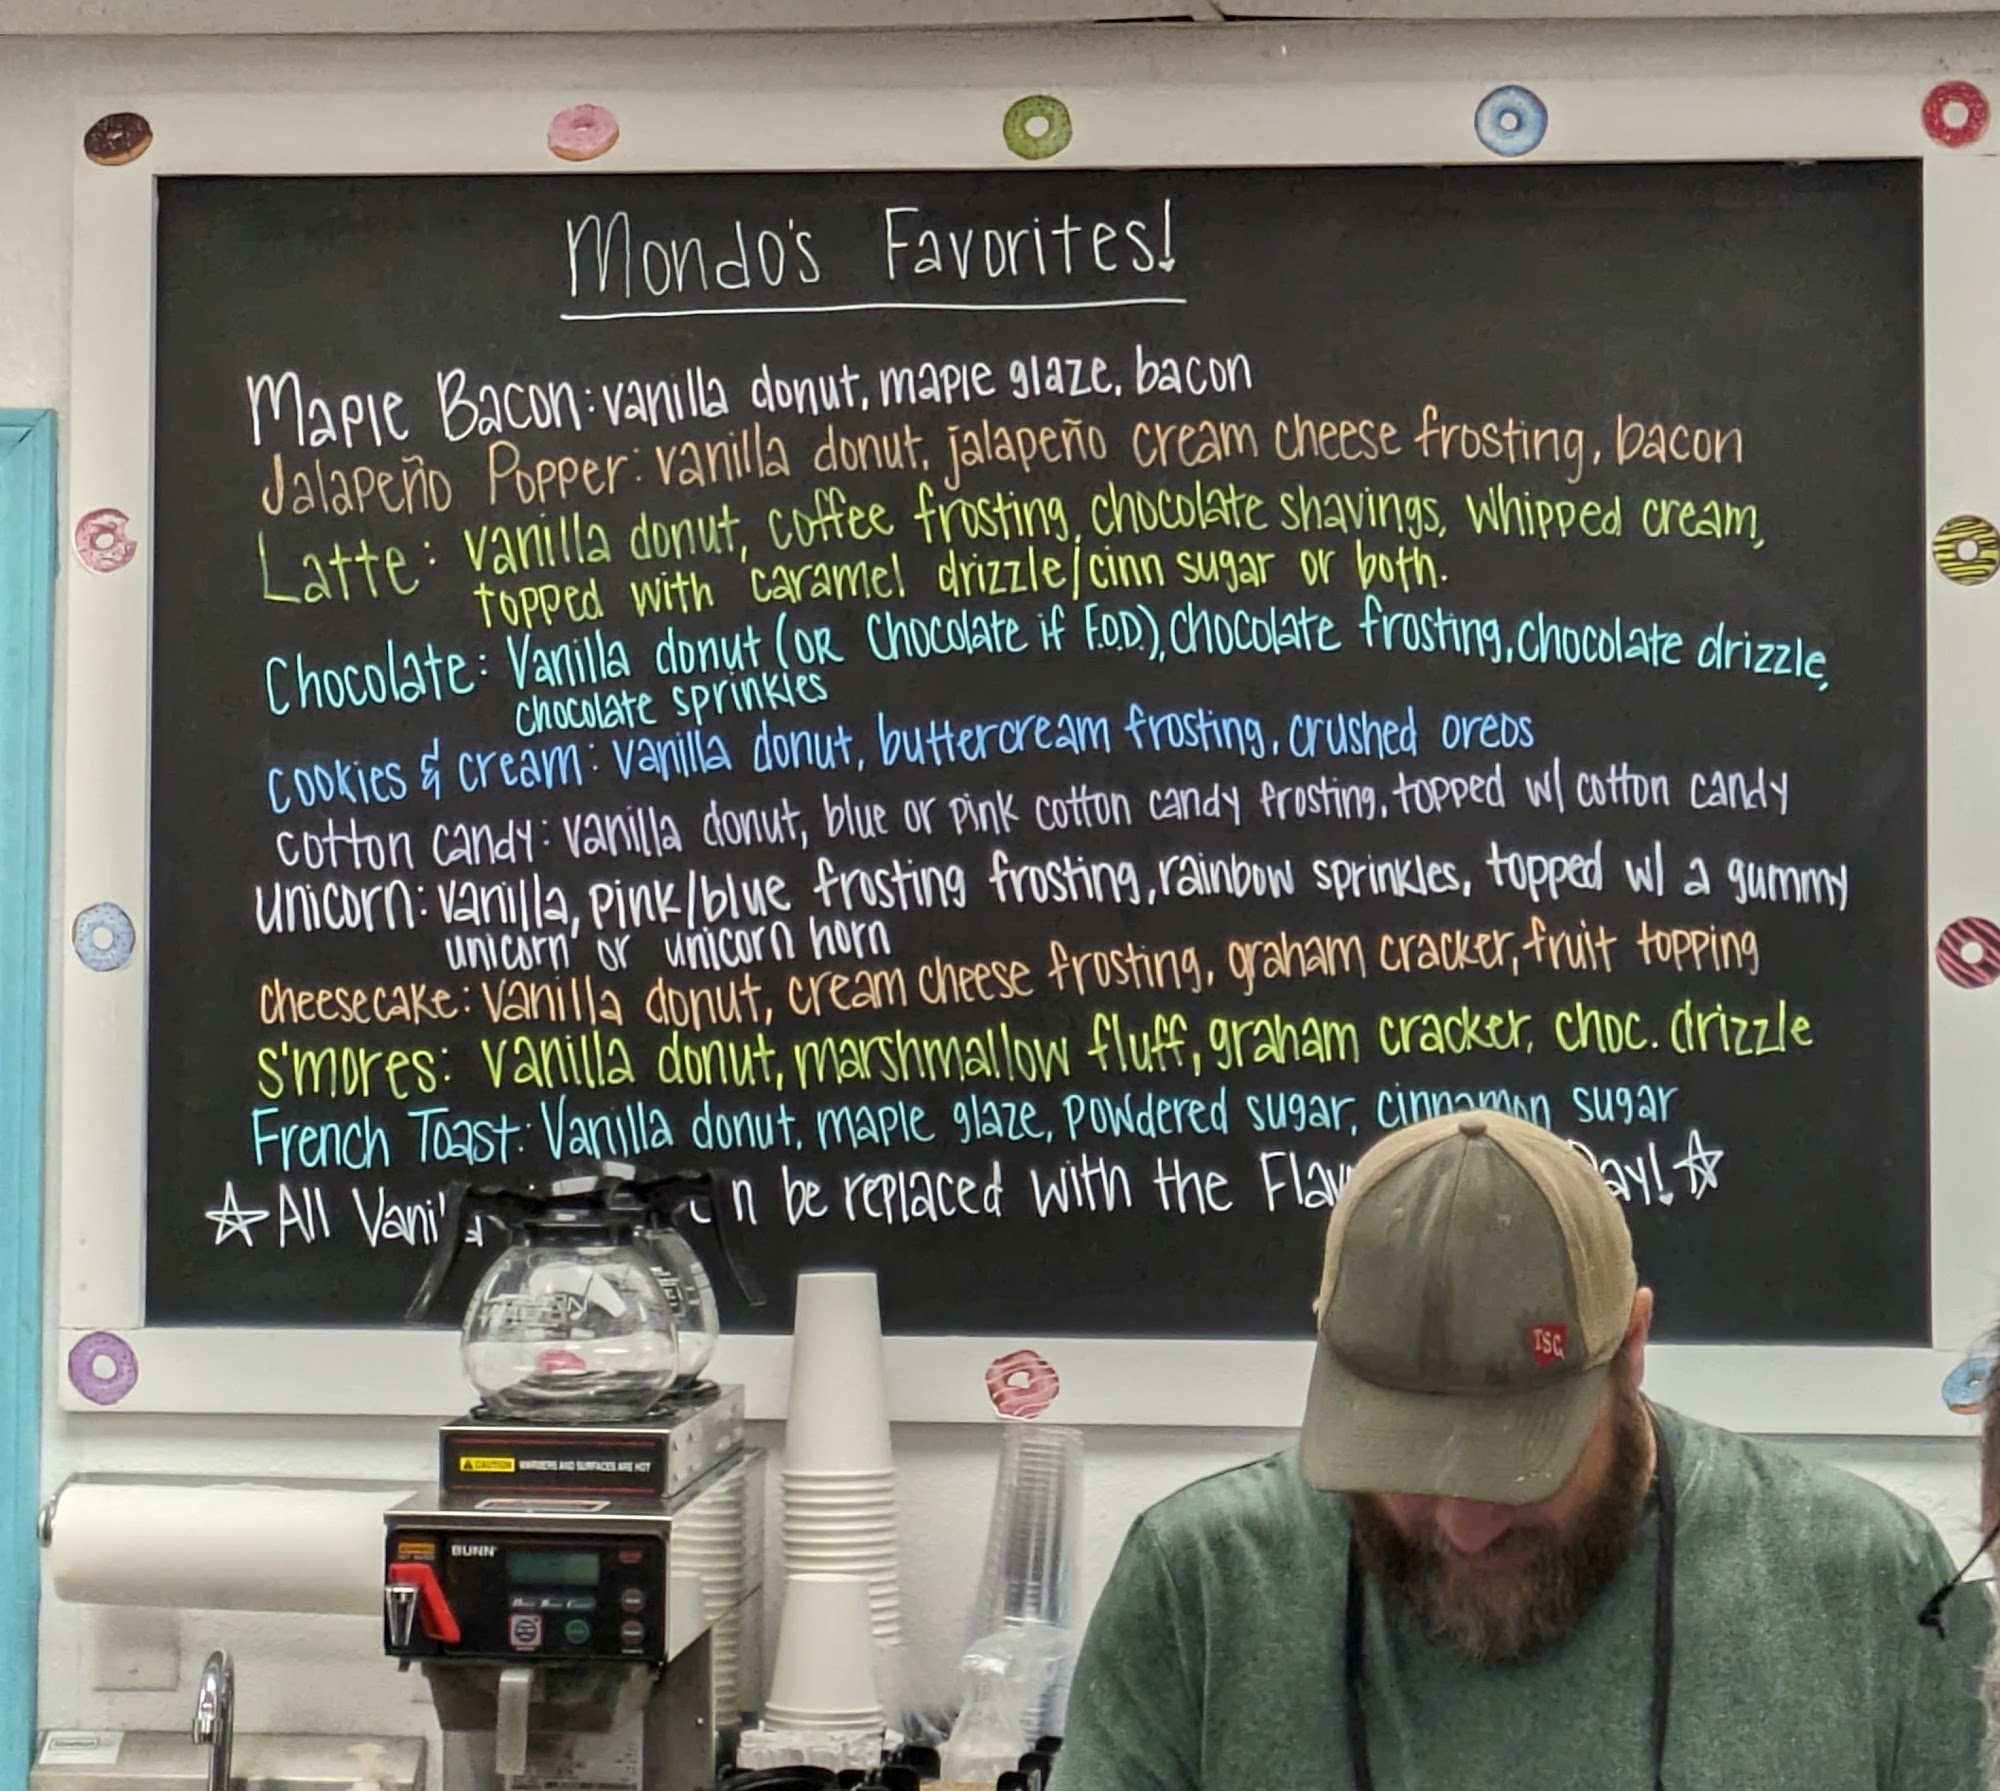 Mondo's Favorites!
Maple Bacon: vanilla donut, maple glaze, bacon
Jalapeño Popper: vanilla donut, jalapeño cream cheese frosting, bacon
Latte: vanilla donut, coffee frosting, chocolate shavings, whipped cream,
topped with caramel drizzle/cinn sugar or both.
Chocolate: Vanilla donut (OR Chocolate if F.O.D.), chocolate frosting, chocolate drizzle,
chocolate sprinkles
cookies & cream: vanilla donut, buttercream frosting, crushed oreos
cotton candy: vanilla donut, blue or pink cotton candy frosting, topped w/ cotton candy
unicorn: vanilla, pink/blue frosting frosting, rainbow sprinkles, topped w/ a gummy
unicorn or unicorn horn
cheesecake: vanilla donut, cream cheese frosting, graham cracker, fruit topping
s'mores: vanilla donut, marshmallow fluff, graham cracker, choc. drizzle
French Toast: Vanilla donut, maple glaze, powdered sugar, cinnamon sugar
All be replaced with the
TSC
CAUTION WARMERS AND SURFACES ARE HOT
BUNN